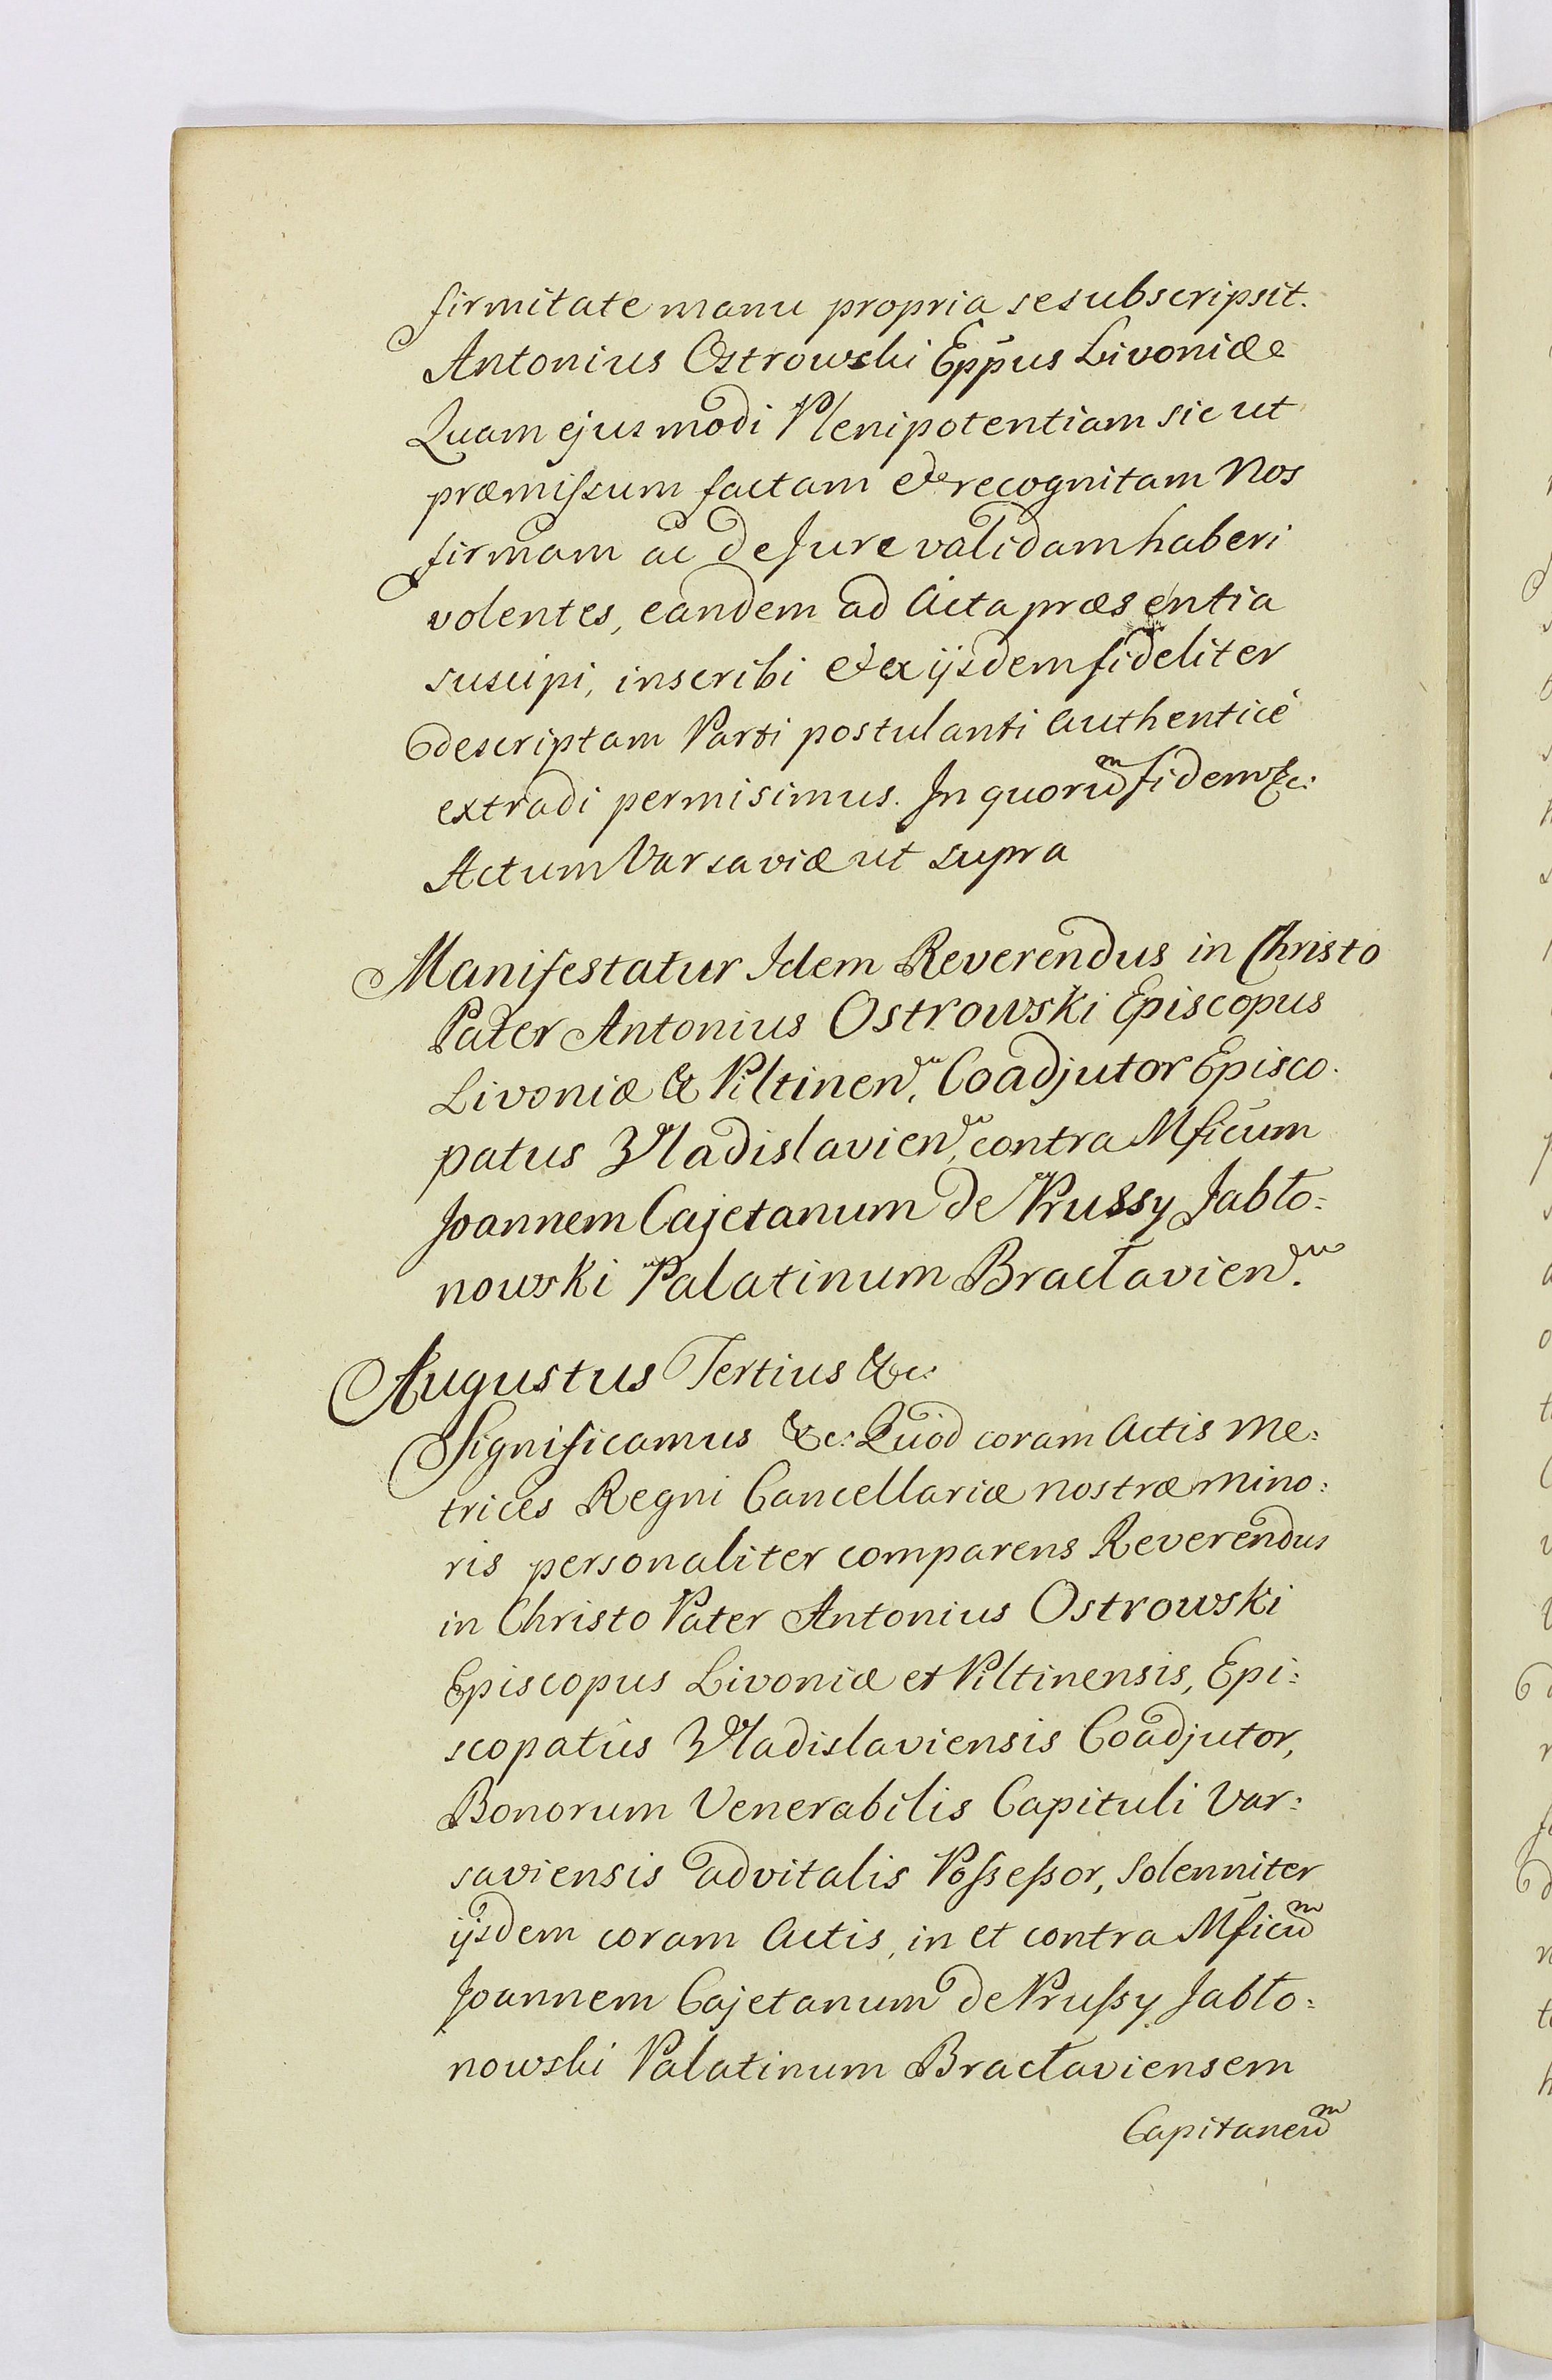 firmitate manu propria se subscripsit.
Antonius Ostrowski Epp̄us Livoniæ
Quam ejusmodi Plenipotentiam sic ut
præmissum factam et recognitam Nos
firmam ac de Jure validam haberi
volentes, eandem ad Acta præsentia
suscipi, inscribi et ex ijsdem fideliter
descriptam Parti postulanti authenticè
extradi permisimus. In quorū^m fidem &c:
Actum Varsaviæ ut supra
Manifestatur Idem Reverendus in Christo
Pater Antonius Ostrowski Episcopus
Livoniæ & Piltinen. Coadjutor Episco.
patus Wladislavien. contra Mficum
Joannem Cajetanum de Prussy Jabło=
nowski Palatinum Bracłavien.
Augustus Tertius &c:
Significamus &c: Quod coram Actis Me=
trices Regni Cancellariæ nostræ mino=
ris personaliter comparens Reverendus
in Christo Pater Antonius Ostrowski
Episcopus Livoniæ et Piltinensis, Epi=
scopatûs Wladislaviensis Coadjutor,
Bonorum Venerabilis Capituli Var=
saviensis advitalis Possessor, solenniter
ijsdem coram Actis, in et contra Mficū^m
Joannem Cajetanum de Prussy Jabło=
nowski Palatinum Bracłaviensem
Capitaneū^m